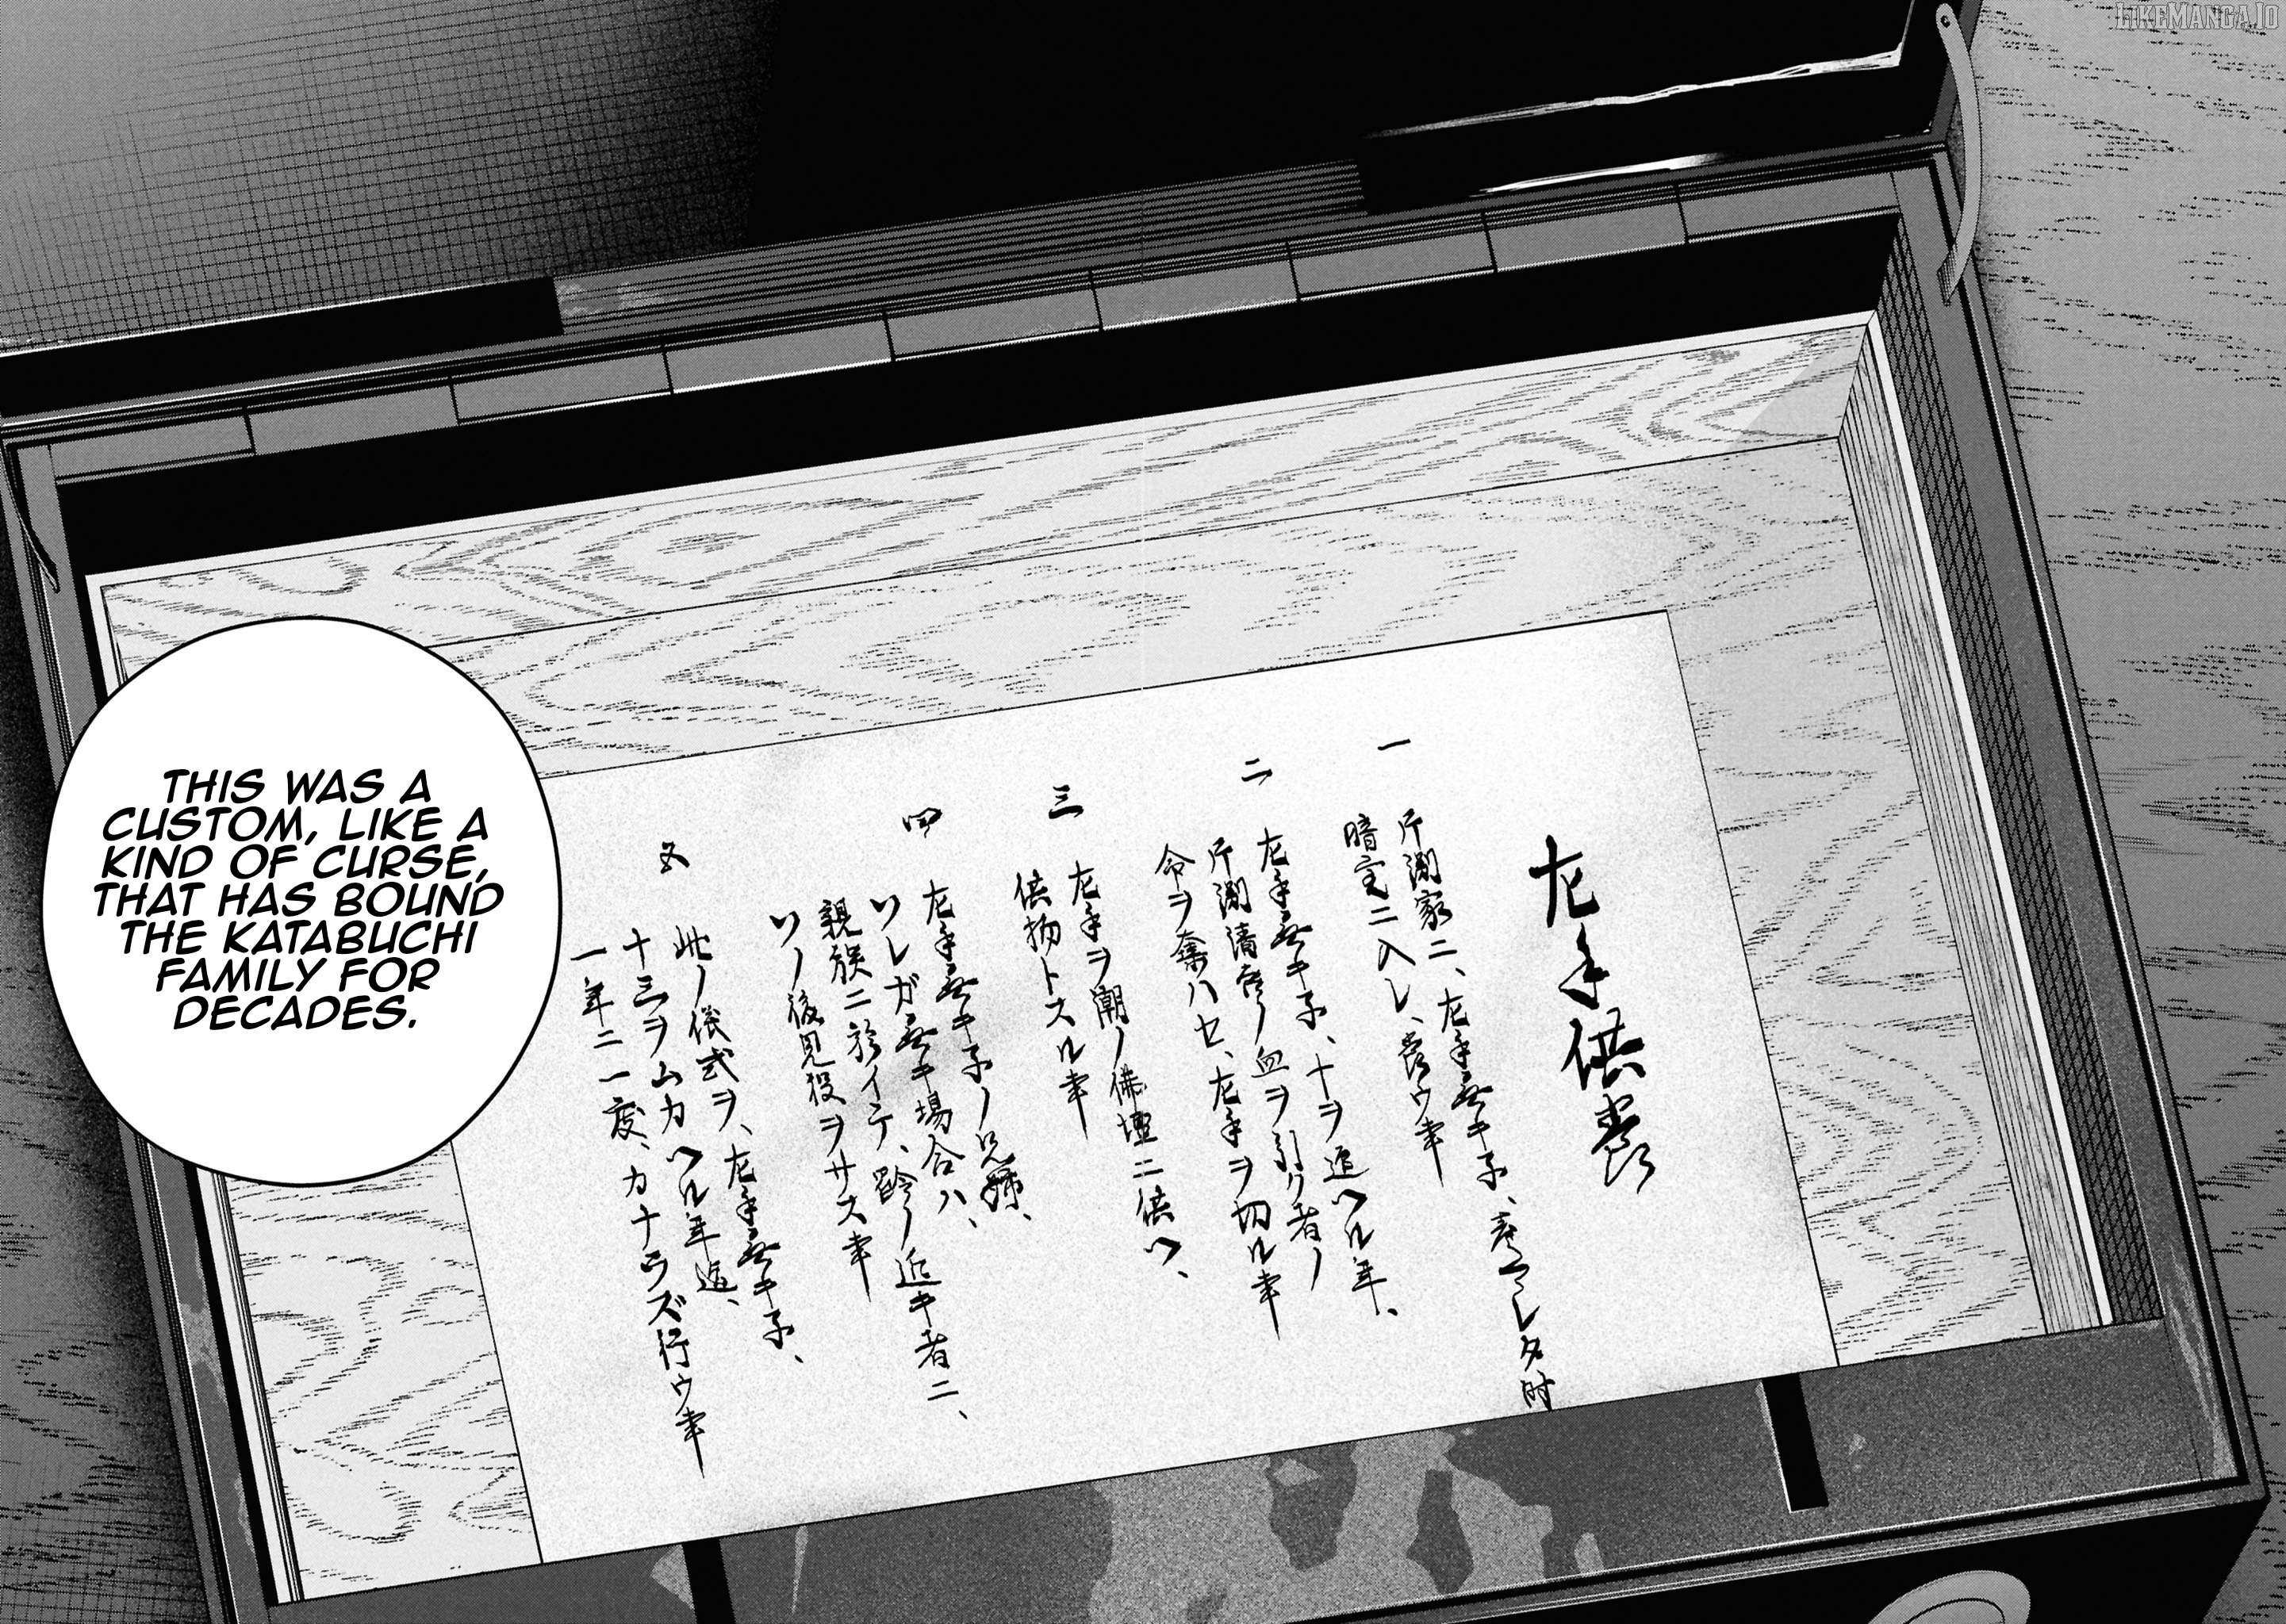 LIKEMANGA.IO
左手供養
一
片淵家ニ、左手無キ子、産マレタ時
暗室ニ入レ、養ウ事
二
左手無キ子、十ヲ迎ヘル年、
片淵清吉ノ血ヲ引ク者ノ
命ヲ奪ハセ、左手ヲ切ル事
三
左手ヲ潮ノ佛壇ニ供ヘ、
供物トスル事
四
左手無キ子ノ兄姉、
ソレガ無キ場合ハ、
親族ニ於イテ、齢ノ近キ者ニ、
ソノ後見役ヲサス事
五
此ノ儀式ヲ、左手無キ子、
十三ヲムカヘル年迄、
一年ニ一度、カナラズ行ウ事
THIS WAS A
CUSTOM, LIKE A
KIND OF CURSE,
THAT HAS BOUND
THE KATABUCHI
FAMILY FOR
DECADES.